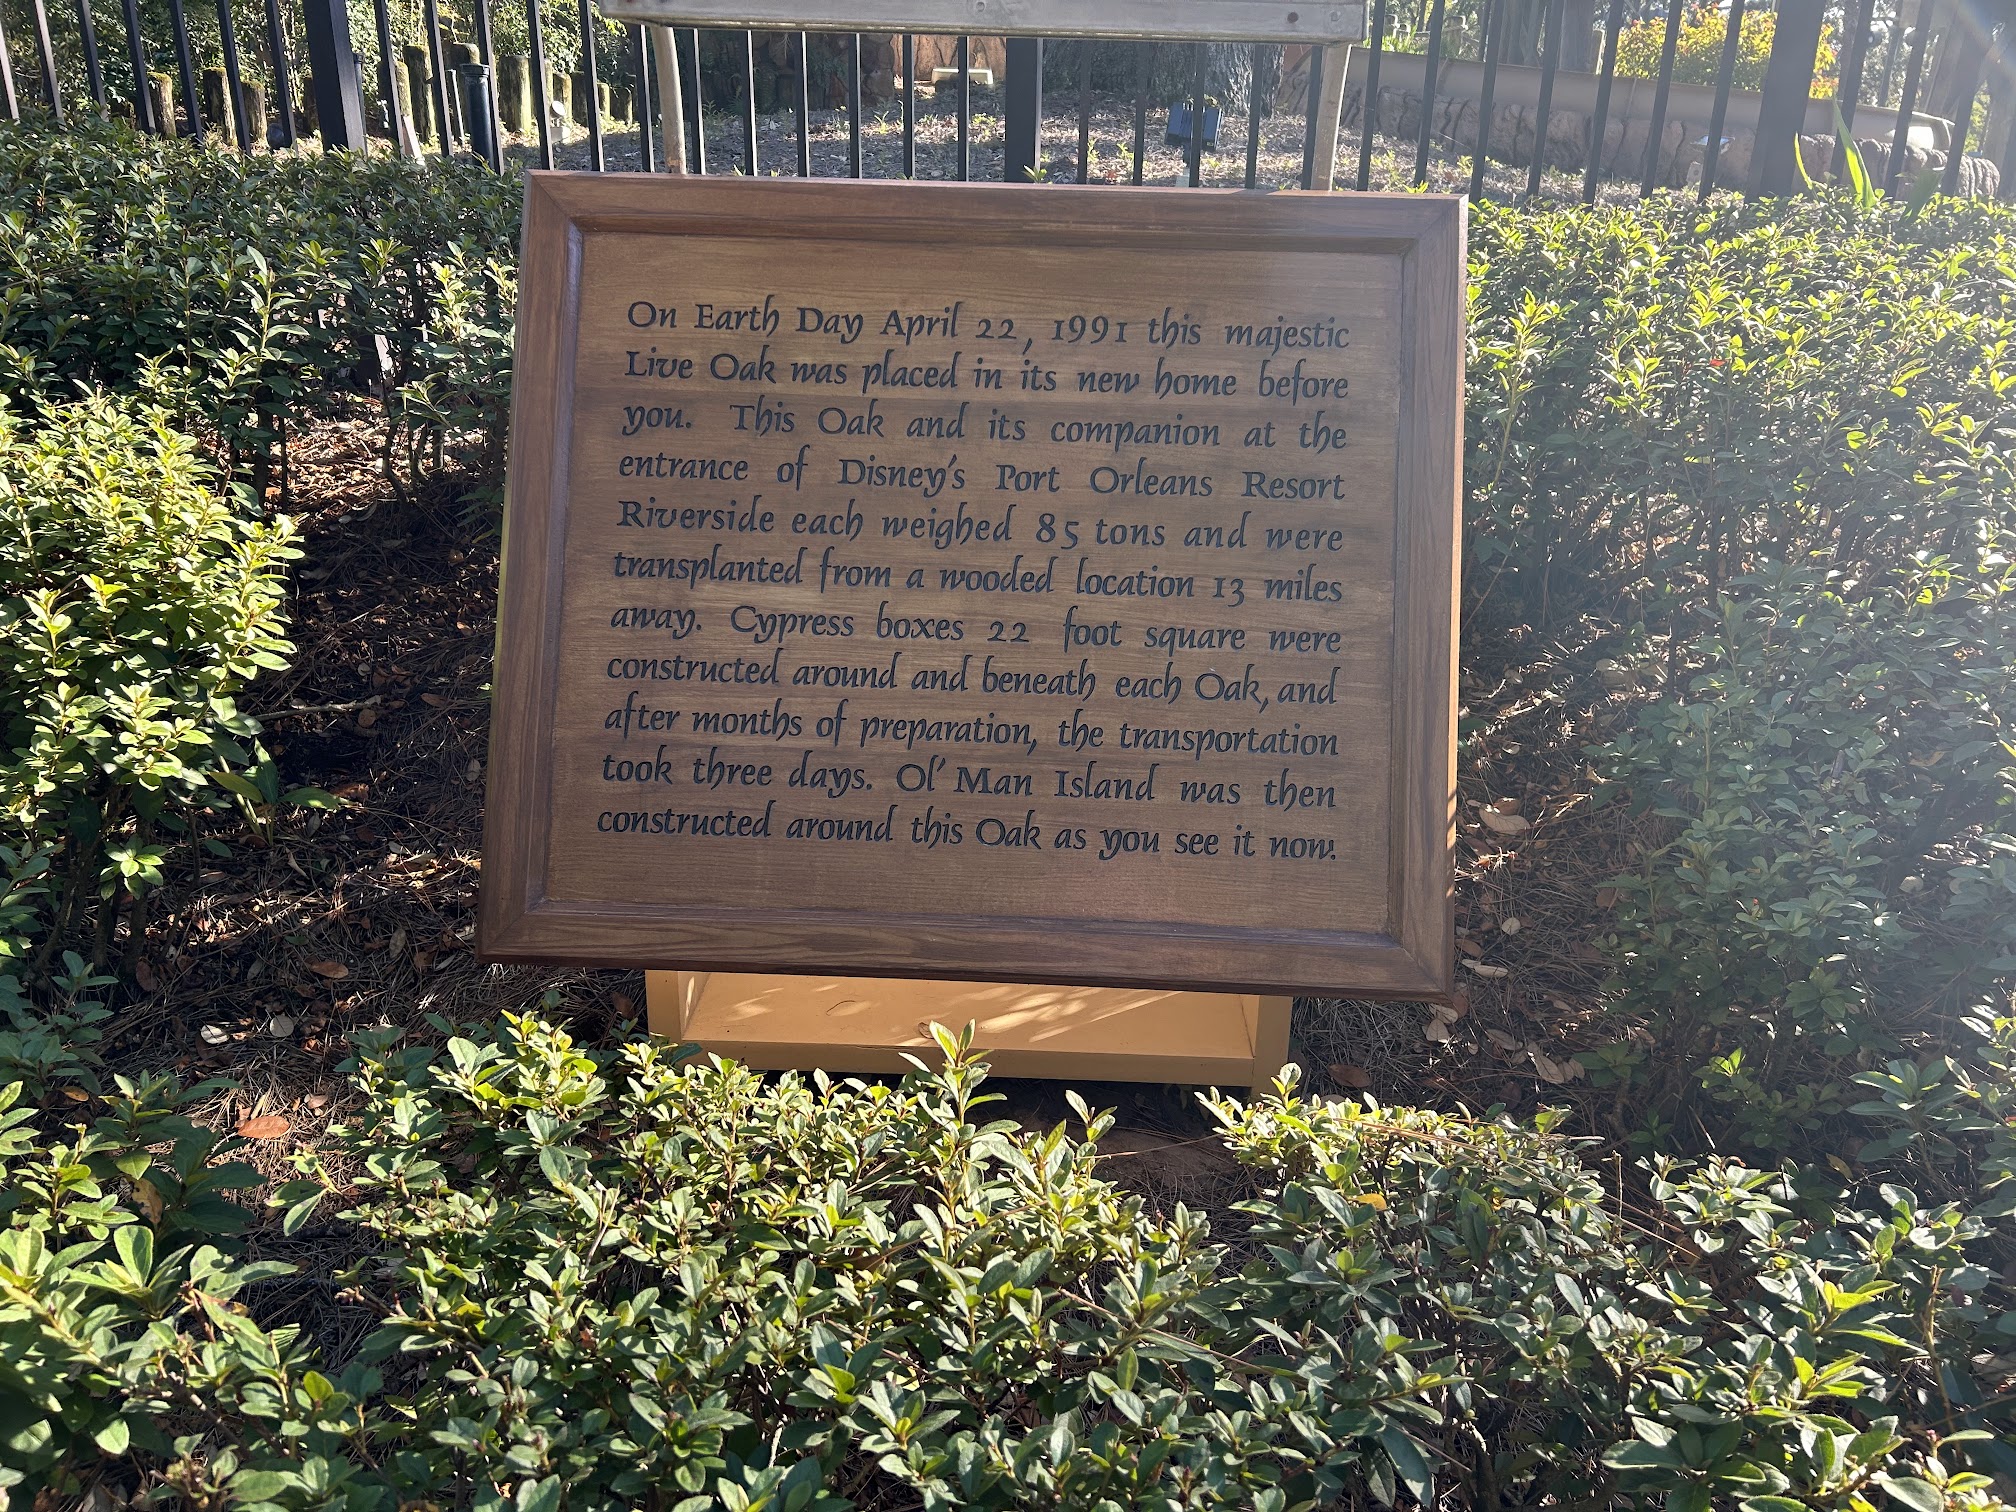 On Earth Day April 22, 1991 this majestic
Live Oak was placed in its new home before
you. This Oak and its companion at the
entrance of Disney's Port Orleans Resort
Riverside each weighed 85 tons and were
transplanted from a wooded location 13 miles
away. Cypress boxes 22 foot square were
constructed around and beneath each Oak, and
after months of preparation, the transportation
took three days. Ol' Man Island was then
constructed around this Oak as you see it now.